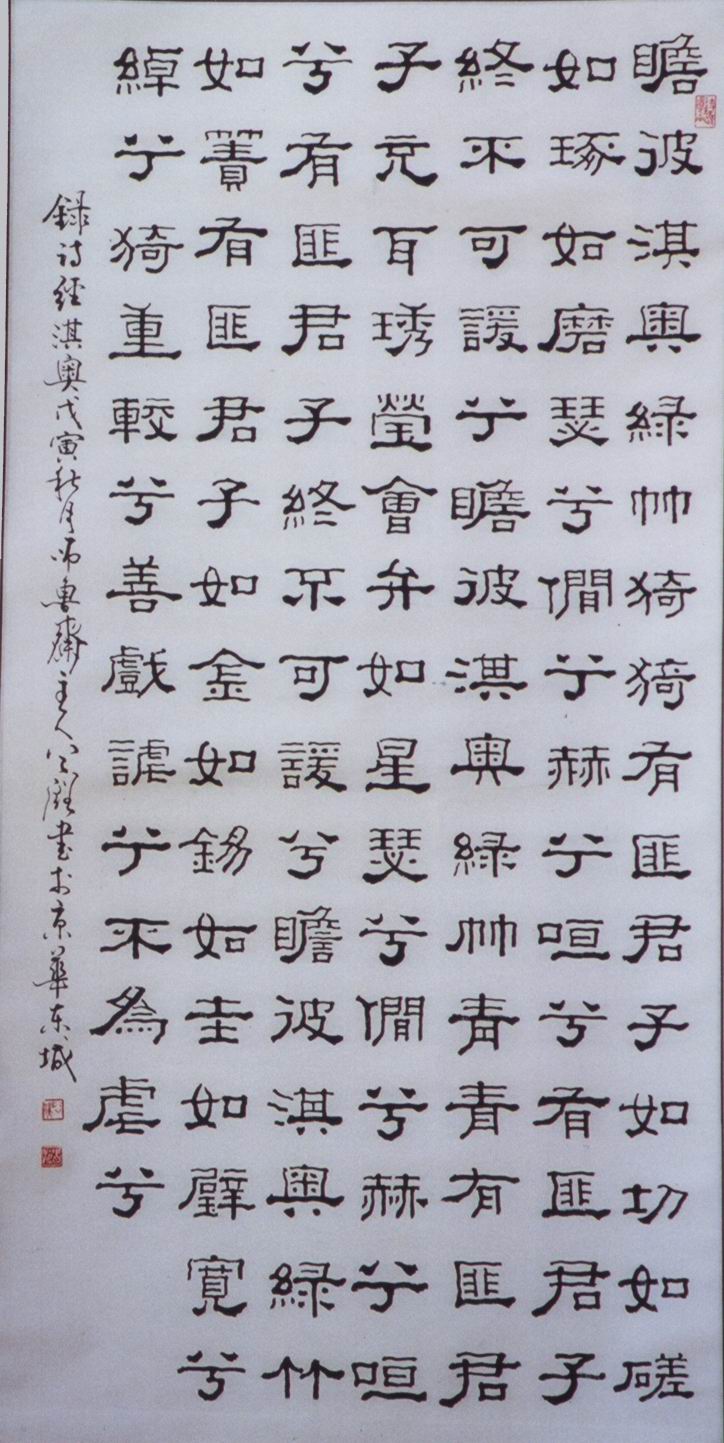 瞻彼淇奥緑竹猗猗有匪君子如切如磋
如琢如磨瑟兮僩兮赫兮咺兮有匪君子
終不可諼兮瞻彼淇奥緑竹青青有匪君
子充耳琇瑩會弁如星瑟兮僩兮赫兮咺
兮有匪君子終不可諼兮瞻彼淇奥緑竹
如簀有匪君子如金如錫如圭如璧寬兮
綽兮猗重較兮善戲謔兮不為虐兮
録诗經淇奥戊寅秋月師魯齋主人书於京華东城